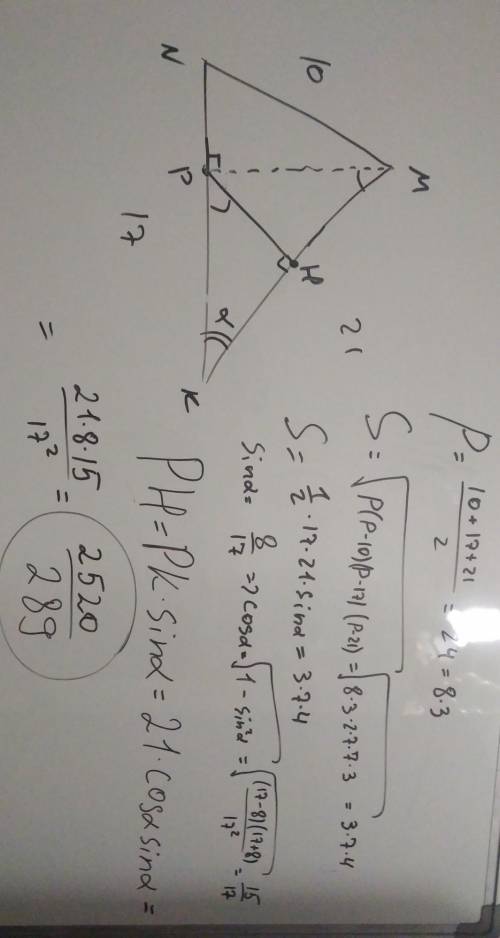 M
10
H
21
N
P
α
K
17
P = (10+17+21)/2 = 24 = 8·3
S = √(P(P-10)(P-17)(P-21)) = √(8·3·2·7·7·3) = 3·7·4
S = 1/2 · 17·21·sinα = 3·7·4
sinα = 8/17 => cosα = √(1-sin²α) = √((17-8)(17+8)/17²) = 15/17
PH = PK·sinα = 21·cosα sinα =
= 21·8·15/17² = 2520/289